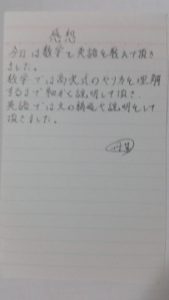 感想
今日は数学と英語を教えて頂き
ました。
数学では方程式のやり方を理解
するまで細かく説明して頂き、
英語では文の構成や説明をして
頂きました。